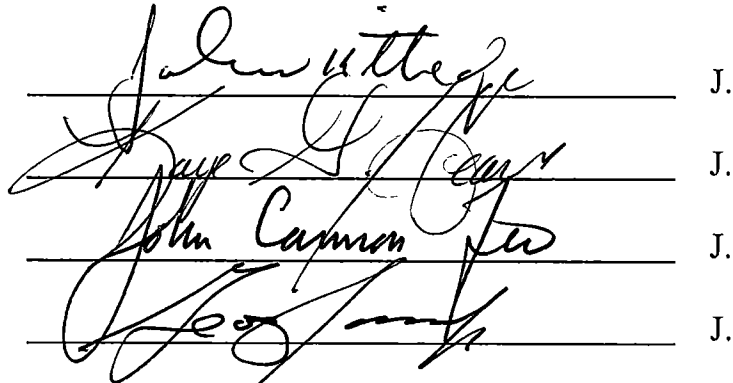 John Kittredge J.
Kaye G. Hearn J.
John Cannon Few J.
J.